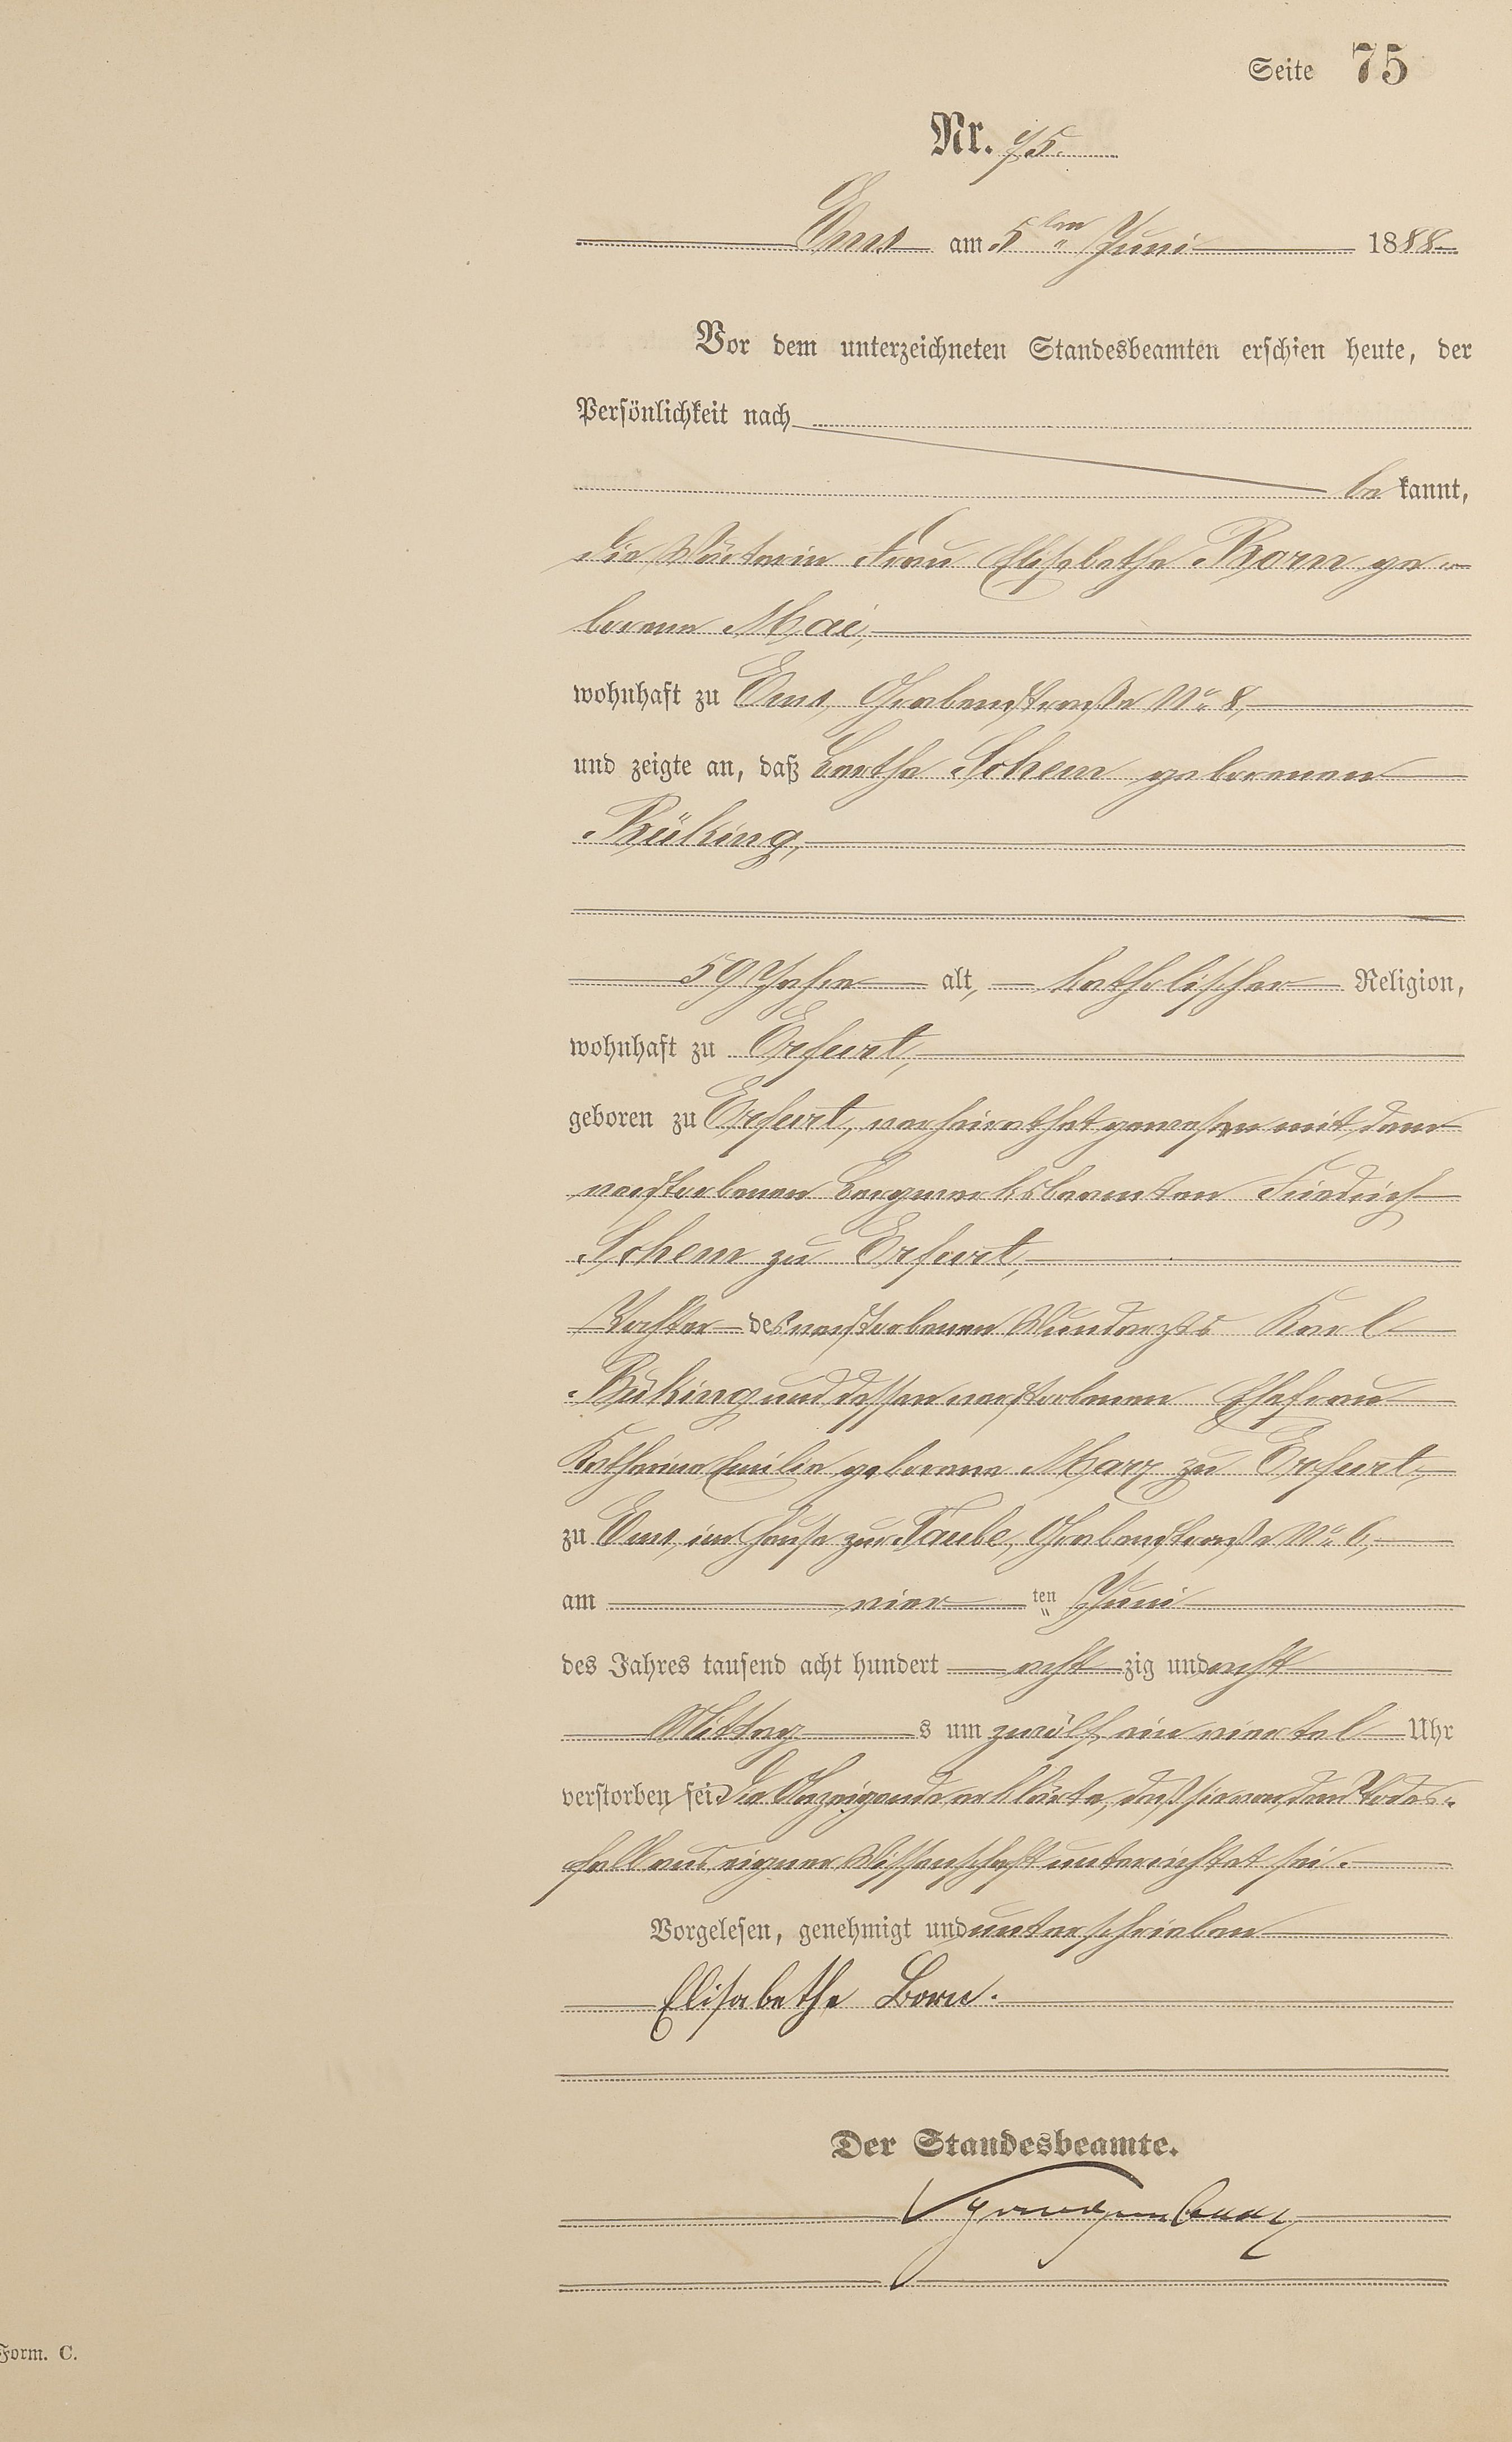 Seite 75
Nr. 75.
Ems am 5ten Juni 1888
Vor dem unterzeichneten Standesbeamten erschien heute, der
Persönlichkeit nach
be kannt,
die Wärterin Frau Elisabetha Born ge-
borene Mai,
wohnhaft zu Ems, Grabenstraße No 8,
und zeigte an, daß Bertha Sohem geborenen
Rüking,
59 Jahre alt, katholischer Religion,
wohnhaft zu Erfurt,
geboren zu Erfurt, verheirathet gewesen mit dem
verstorbenen Bergwerksbeamten Friedrich
Sohem zu Erfurt,
Tochter des verstorbenen Wundarzts Karl
Rüking und dessen verstorbenen Ehefrau
Katharina Emilie geborene Marz zu Erfurt,
zu Ems, im Hause zur Taube, Grabenstraße No 6,
am vier ten Juni
des Jahres tausend acht hundert acht zig und acht
Mittag s um zwölf ein viertel Uhr
verstorben sei Die Anzeigende erklärte, daß sie von dem Todes-
fall aus eigner Wissenschaft unterrichtet sei.
Vorgelesen, genehmigt und unterschrieben
Elisabetha Born.
Der Standesbeamte.
Form. C.